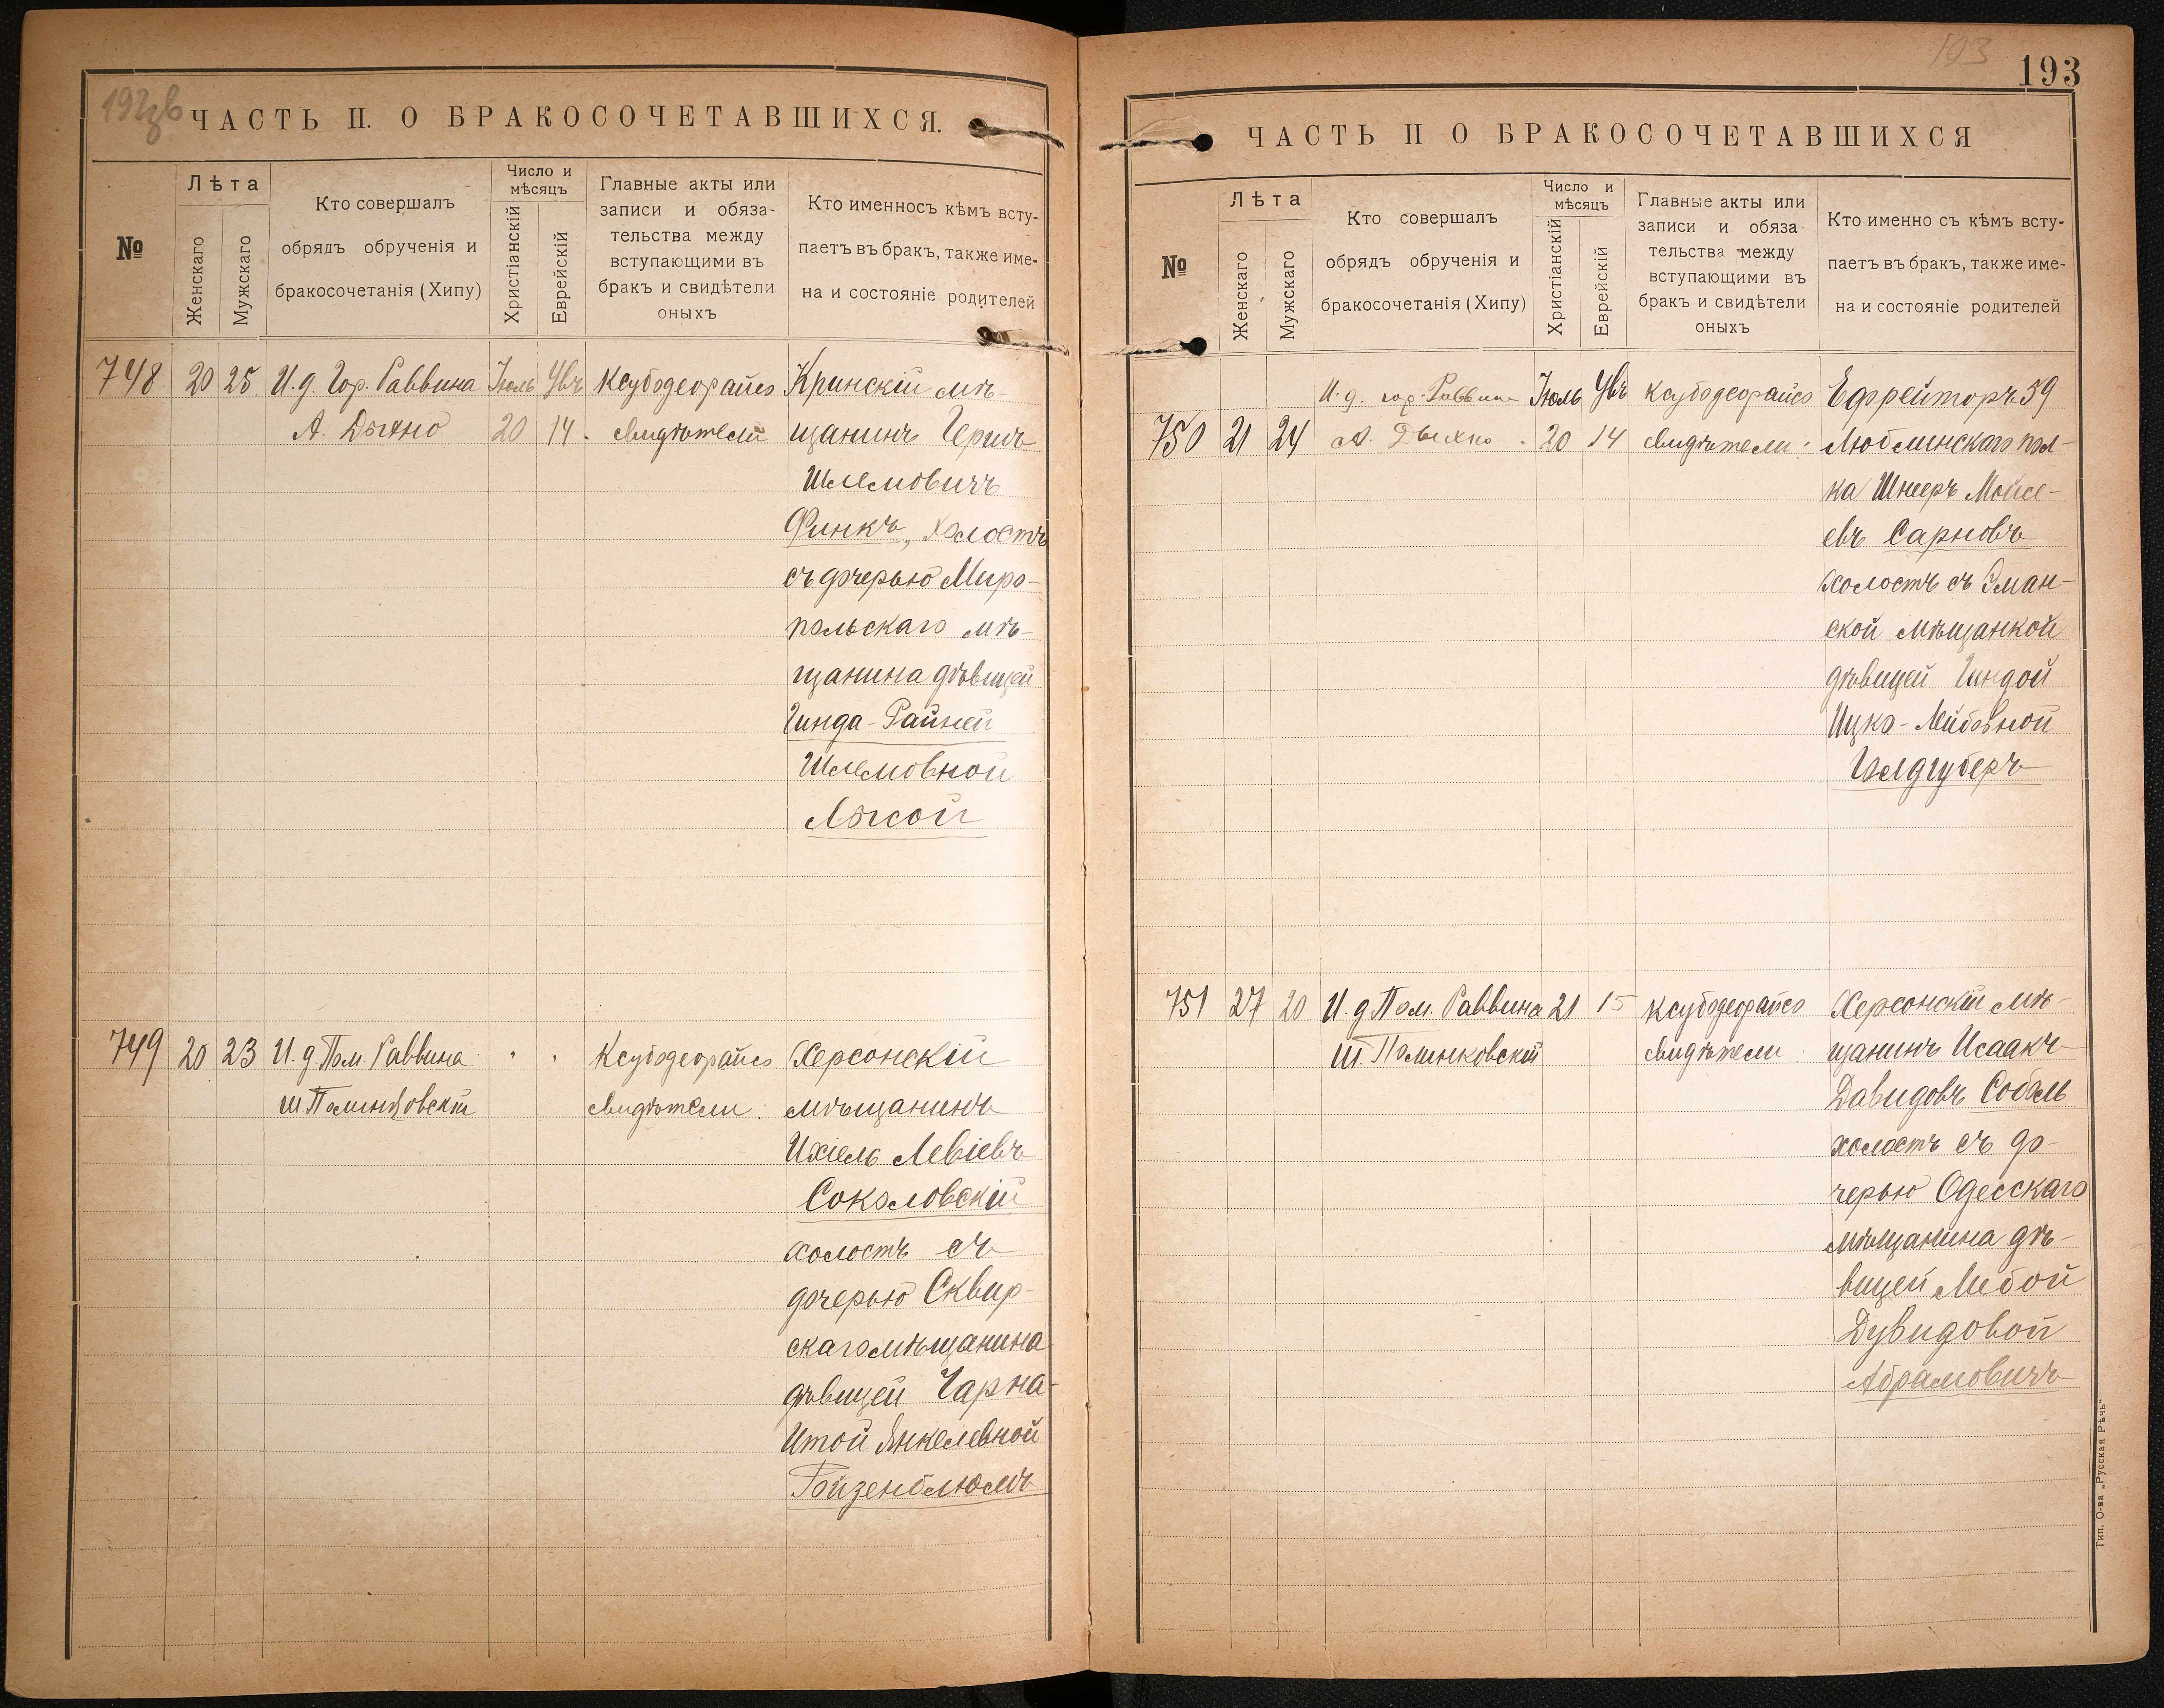 192об
ЧАСТЬ II. О БРАКОСОЧЕТАВШИХСЯ.
№
Лѣта
Женскаго
Мужскаго
Кто совершалъ
обрядъ обрученія и
бракосочетанія (Хипу)
Число и
мѣсяцъ
Христіанскій
Еврейскій
Главные акты или
записи и обяза-
тельства между
вступающими въ
бракъ и свидѣтели
оныхъ
Кто именносъ кѣмъ всту-
паетъ въ бракъ, также име-
на и состояніе родителей
748 20 25 И.д. Гор. Раввина Іюль Увъ Ксубодеорайсо Кринскій мѣ-
А. Дыхно 20 14. свидѣтели щанинъ Гершъ
Шлемовичъ
Финкъ, холостъ
съ дочерью Миро-
польскаго мѣ-
щанина дѣвицей
Гинда-Райней
Шлемовной
Лысой
749 20 23 И.д. Пом. Раввина " " Ксубодеорайсо Херсонскій
Ш Полинковскій свидѣтели: мѣщанинъ
Ихіель Левіевъ
Соколовскій
холостъ съ
дочерью Сквир-
скаго мѣщанина
дѣвицей Чарна-
Итой Янкелевной
Ройзенблюмъ
193
193
ЧАСТЬ II О БРАКОСОЧЕТАВШИХСЯ
№
Лѣта
Женскаго
Мужскаго
Кто совершалъ
обрядъ обрученія и
бракосочетанія (Хипу)
Число и
мѣсяцъ
Христіанскій
Еврейскій
Главные акты или
записи и обяза-
тельства между
вступающими въ
бракъ и свидѣтели
оныхъ
Кто именно съ кѣмъ всту-
паетъ въ бракъ, также име-
на и состояніе родителей
И.д. гор. Раввина Іюль Увъ Ксубодеорайсо Ефрейторъ 59
750 21 24 А. Дыхно 20 14 свидѣтели: Люблинскаго пол-
ка Шнееръ Мойсе-
евъ Сарновъ
холостъ съ Уман-
ской мѣщанкой
дѣвицей Гиндой
Ицко-Лейбовной
Голдгуберъ
751 27 20 И.д. Пом. Раввина 21 15 Ксубодеорайсо Херсонскій мѣ-
Ш. Полинковскій свидѣтели щанинъ Исаакъ
Давидовъ Собель
холостъ съ до-
черью Одесскаго
мѣщанина дѣ-
вицей Либой
Дувидовой
Абрамовичъ
Тип. О-ва „Русская Рѣчь“